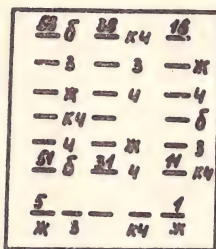 68 б 38 кч 18
з з ж
ж ч ч
кч б
ч ж з
61 б 31 ч 11 кч
5 1
ж з кч ж